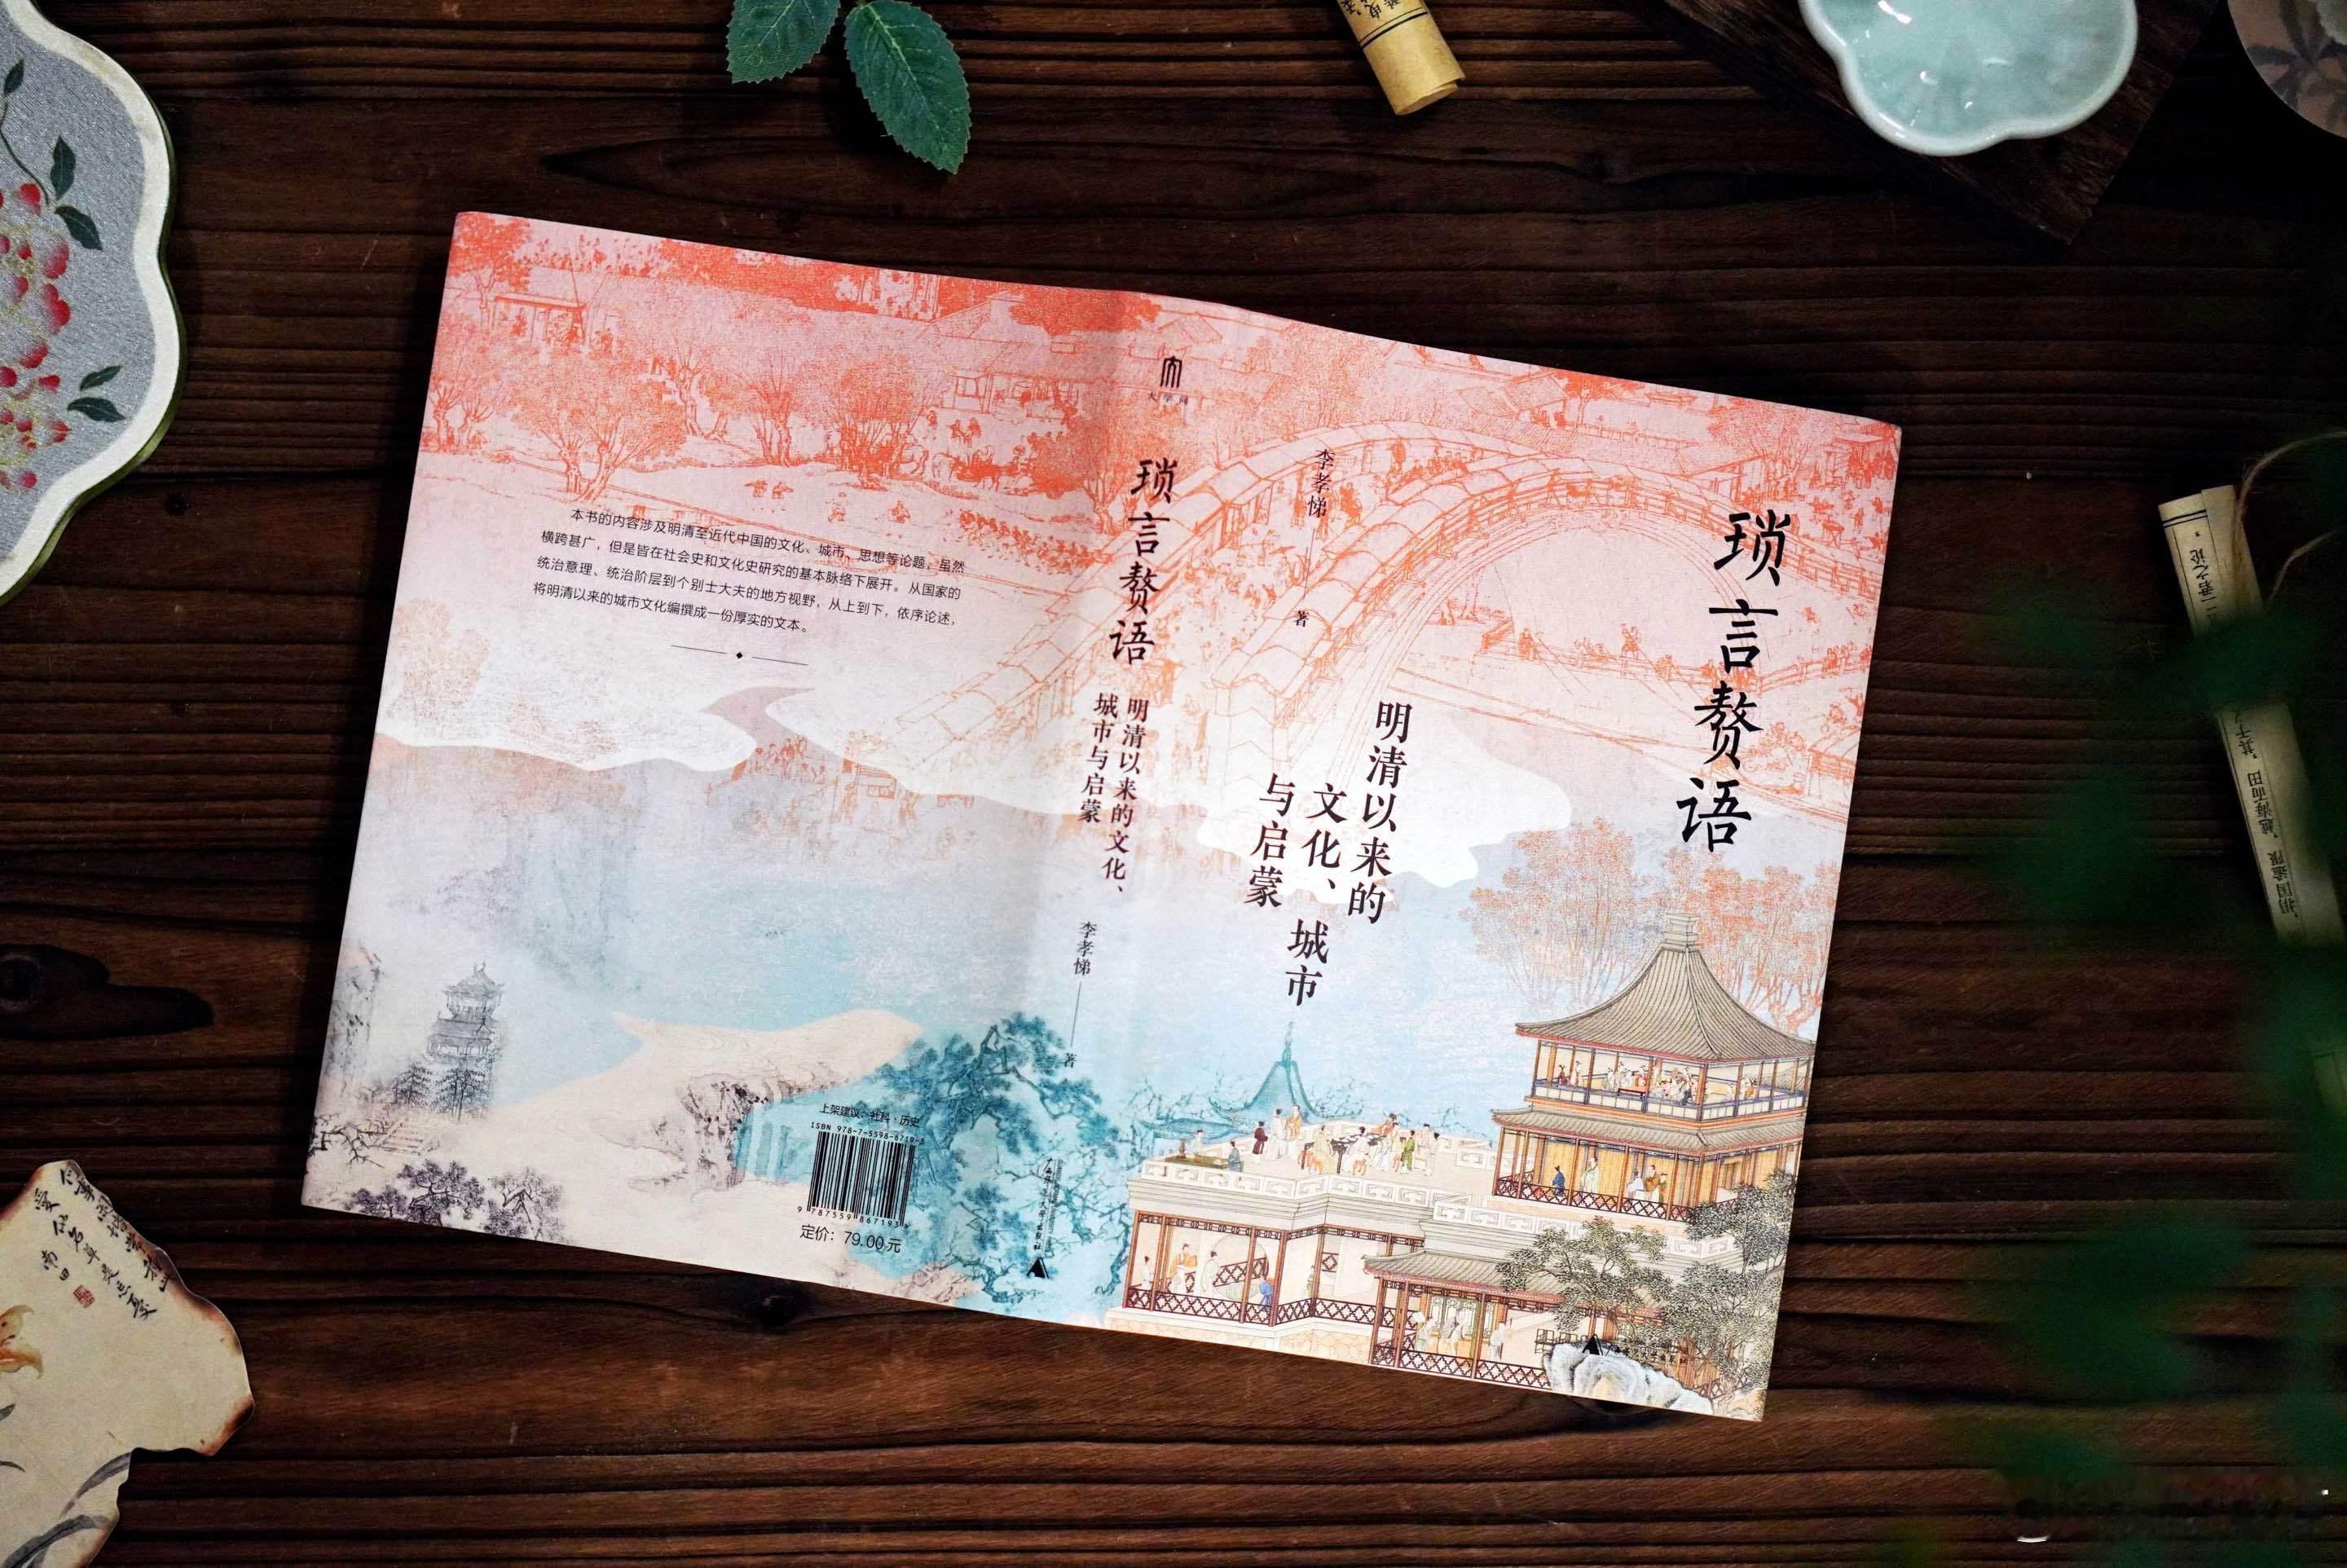 琐言赘语
明清以来的
文化、城市
与启蒙
李孝悌
著
大学问
琐言赘语
明清以来的文化、
城市与启蒙
李孝悌
著
本书的内容涉及明清至近代中国的文化、城市、思想等论题，虽然
横跨甚广，但是皆在社会史和文化史研究的基本脉络下展开。从国家的
统治意理、统治阶层到个别士大夫的地方视野，从上到下，依序论述，
将明清以来的城市文化编撰成一份厚实的文本。
上架建议：社科·历史
ISBN 978-7-5598-6719-3
9 787559 867193
定价：79.00元
南田